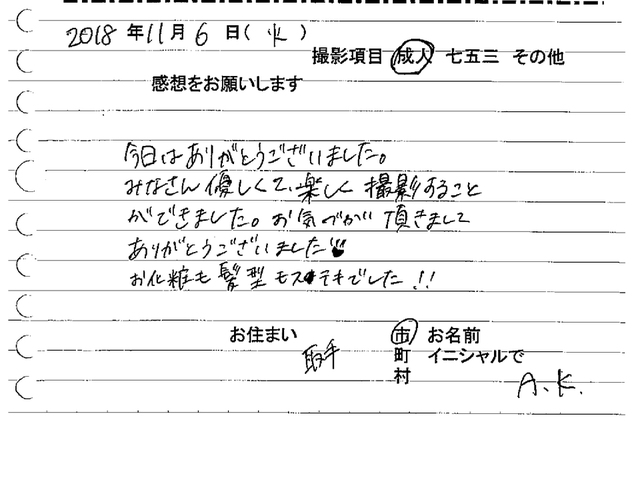 2018年11月6日(火)
撮影項目 成人 七五三 その他
感想をお願いします
今日はありがとうございました。
みなさん優しくて、楽しく撮影すること
ができました。お気づかい頂きまして
ありがとうございました
お化粧も髪型もステキでした!!
お住まい 取手 市町村
お名前 イニシャルで A.K.